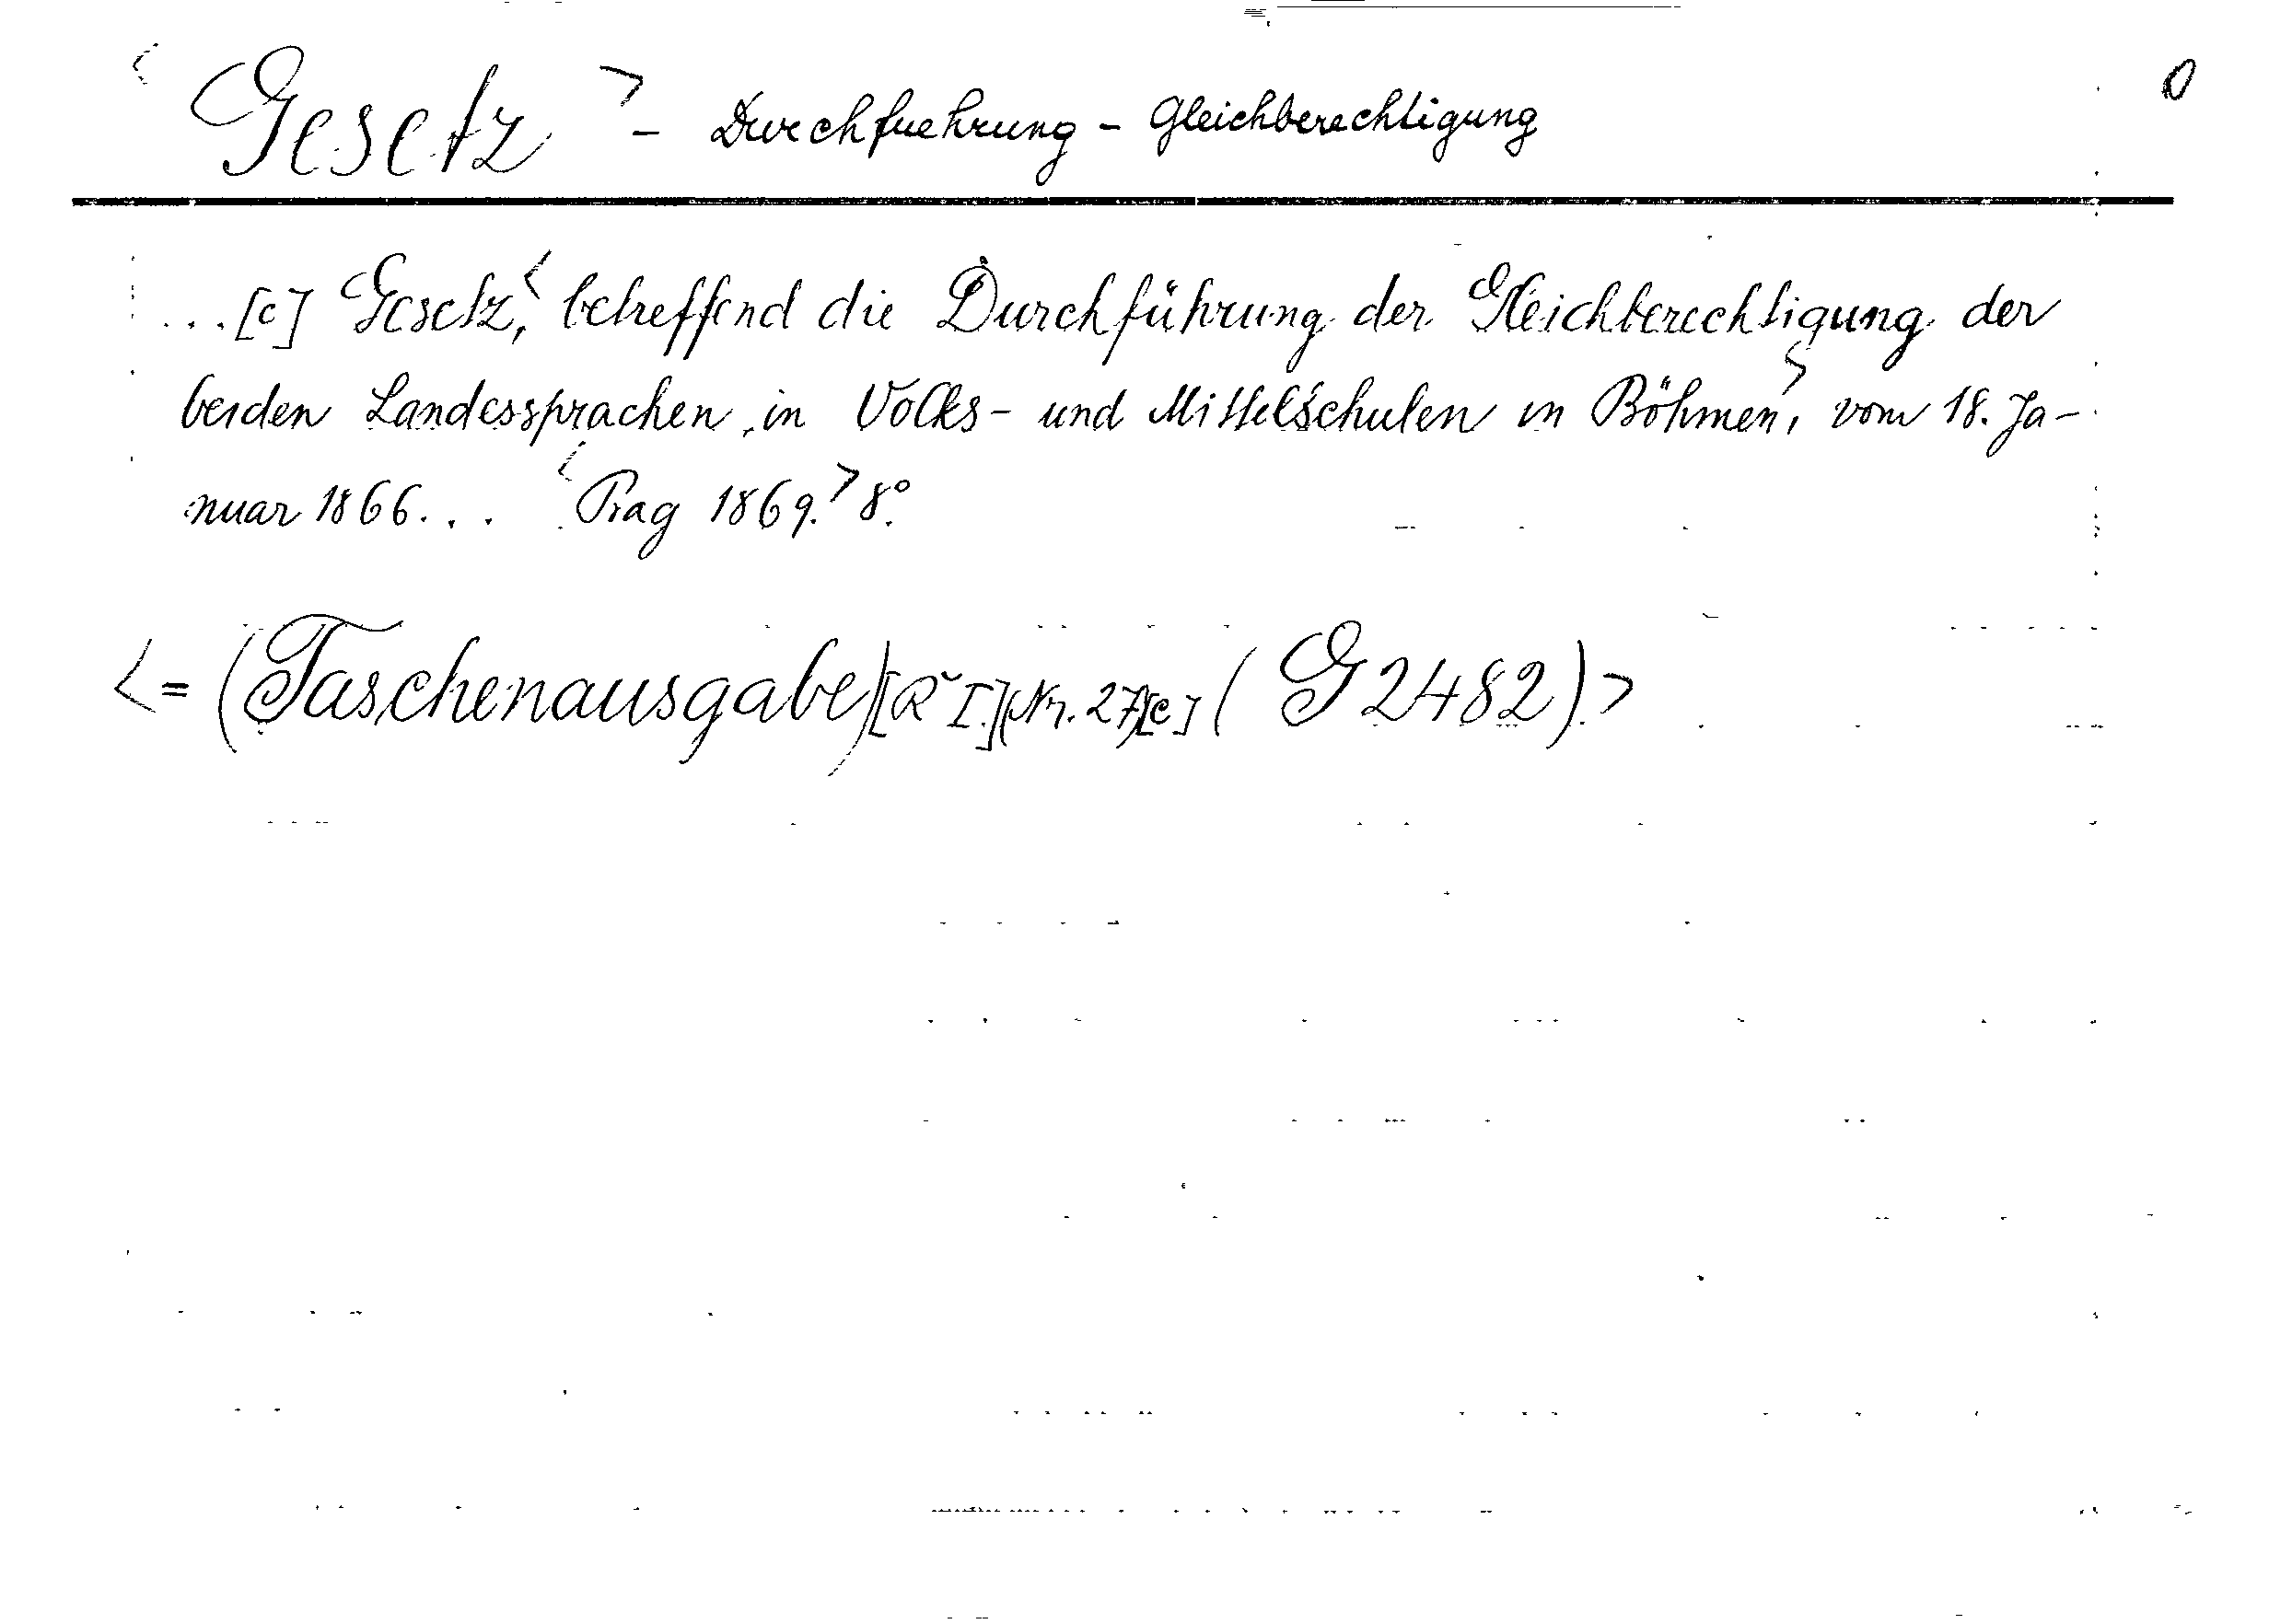 < Gesetz > - Durchfuehrung - Gleichberechtigung 0
...[c] Gesetz, < betreffend die Durchführung der Gleichberechtigung der
beiden Landessprachen in Volks- und Mittelschulen in Böhmen >, vom 18. Ja-
nuar 1866... < Prag 1869. > 8°.
< = (Taschenausgabe) [R I.] (Nr. 27) [c] (G 2482) >